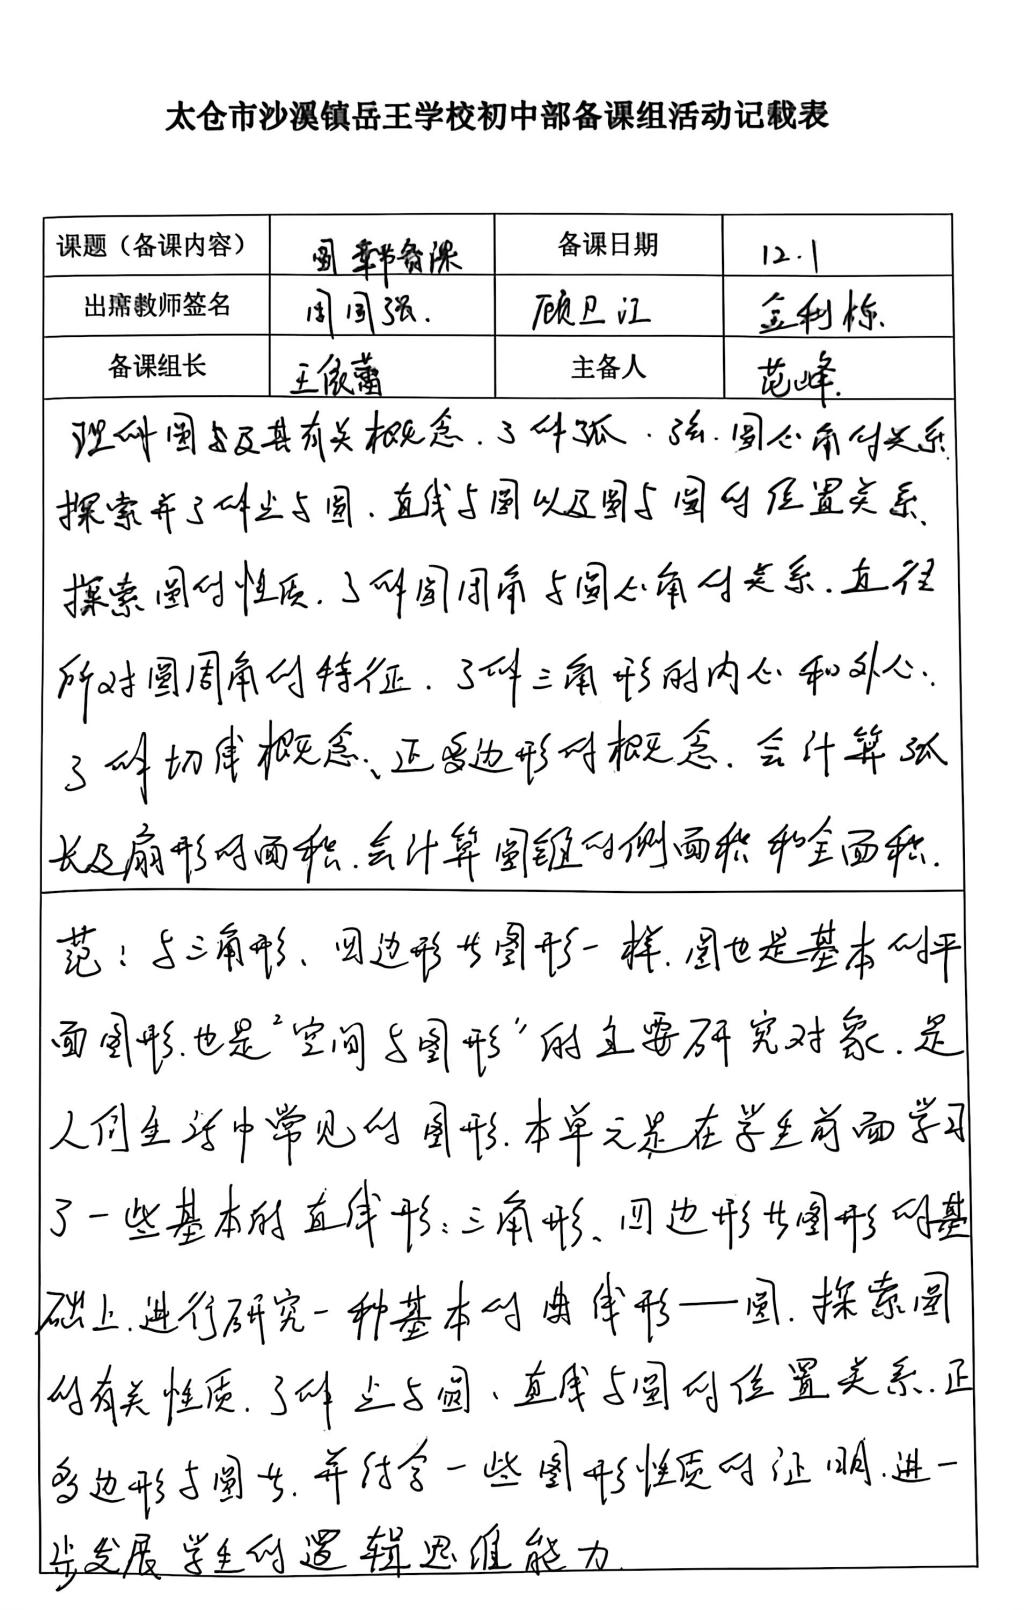 太仓市沙溪镇岳王学校初中部备课组活动记载表
课题（备课内容） 圆 章节备课 备课日期 12.1
出席教师签名 周国强. 顾卫江 金利栋.
备课组长 王依蕾 主备人 范峰.
理解圆与及其有关概念.了解弧.弦.圆心角的关系
探索并了解点与圆.直线与圆以及圆与圆的位置关系、
探索圆的性质.了解圆周角与圆心角的关系.直径
所对圆周角的特征.了解三角形的内心和外心.
了解切线概念、正多边形的概念.会计算弧
长及扇形的面积.会计算圆锥的侧面积和全面积.
范：与三角形、四边形等图形一样.圆也是基本的平
面图形.也是“空间与图形”的主要研究对象.是
人们生活中常见的图形.本单元是在学生前面学习
了一些基本的直线形：三角形、四边形等图形的基
础上.进行研究一种基本的曲线形——圆.探索圆
的有关性质.了解点与圆、直线与圆的位置关系.正
多边形与圆等.并结合一些图形性质的证明.进一
步发展学生的逻辑思维能力.